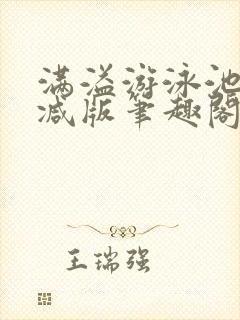 满溢游泳池
减版笔趣阁
王瑞强